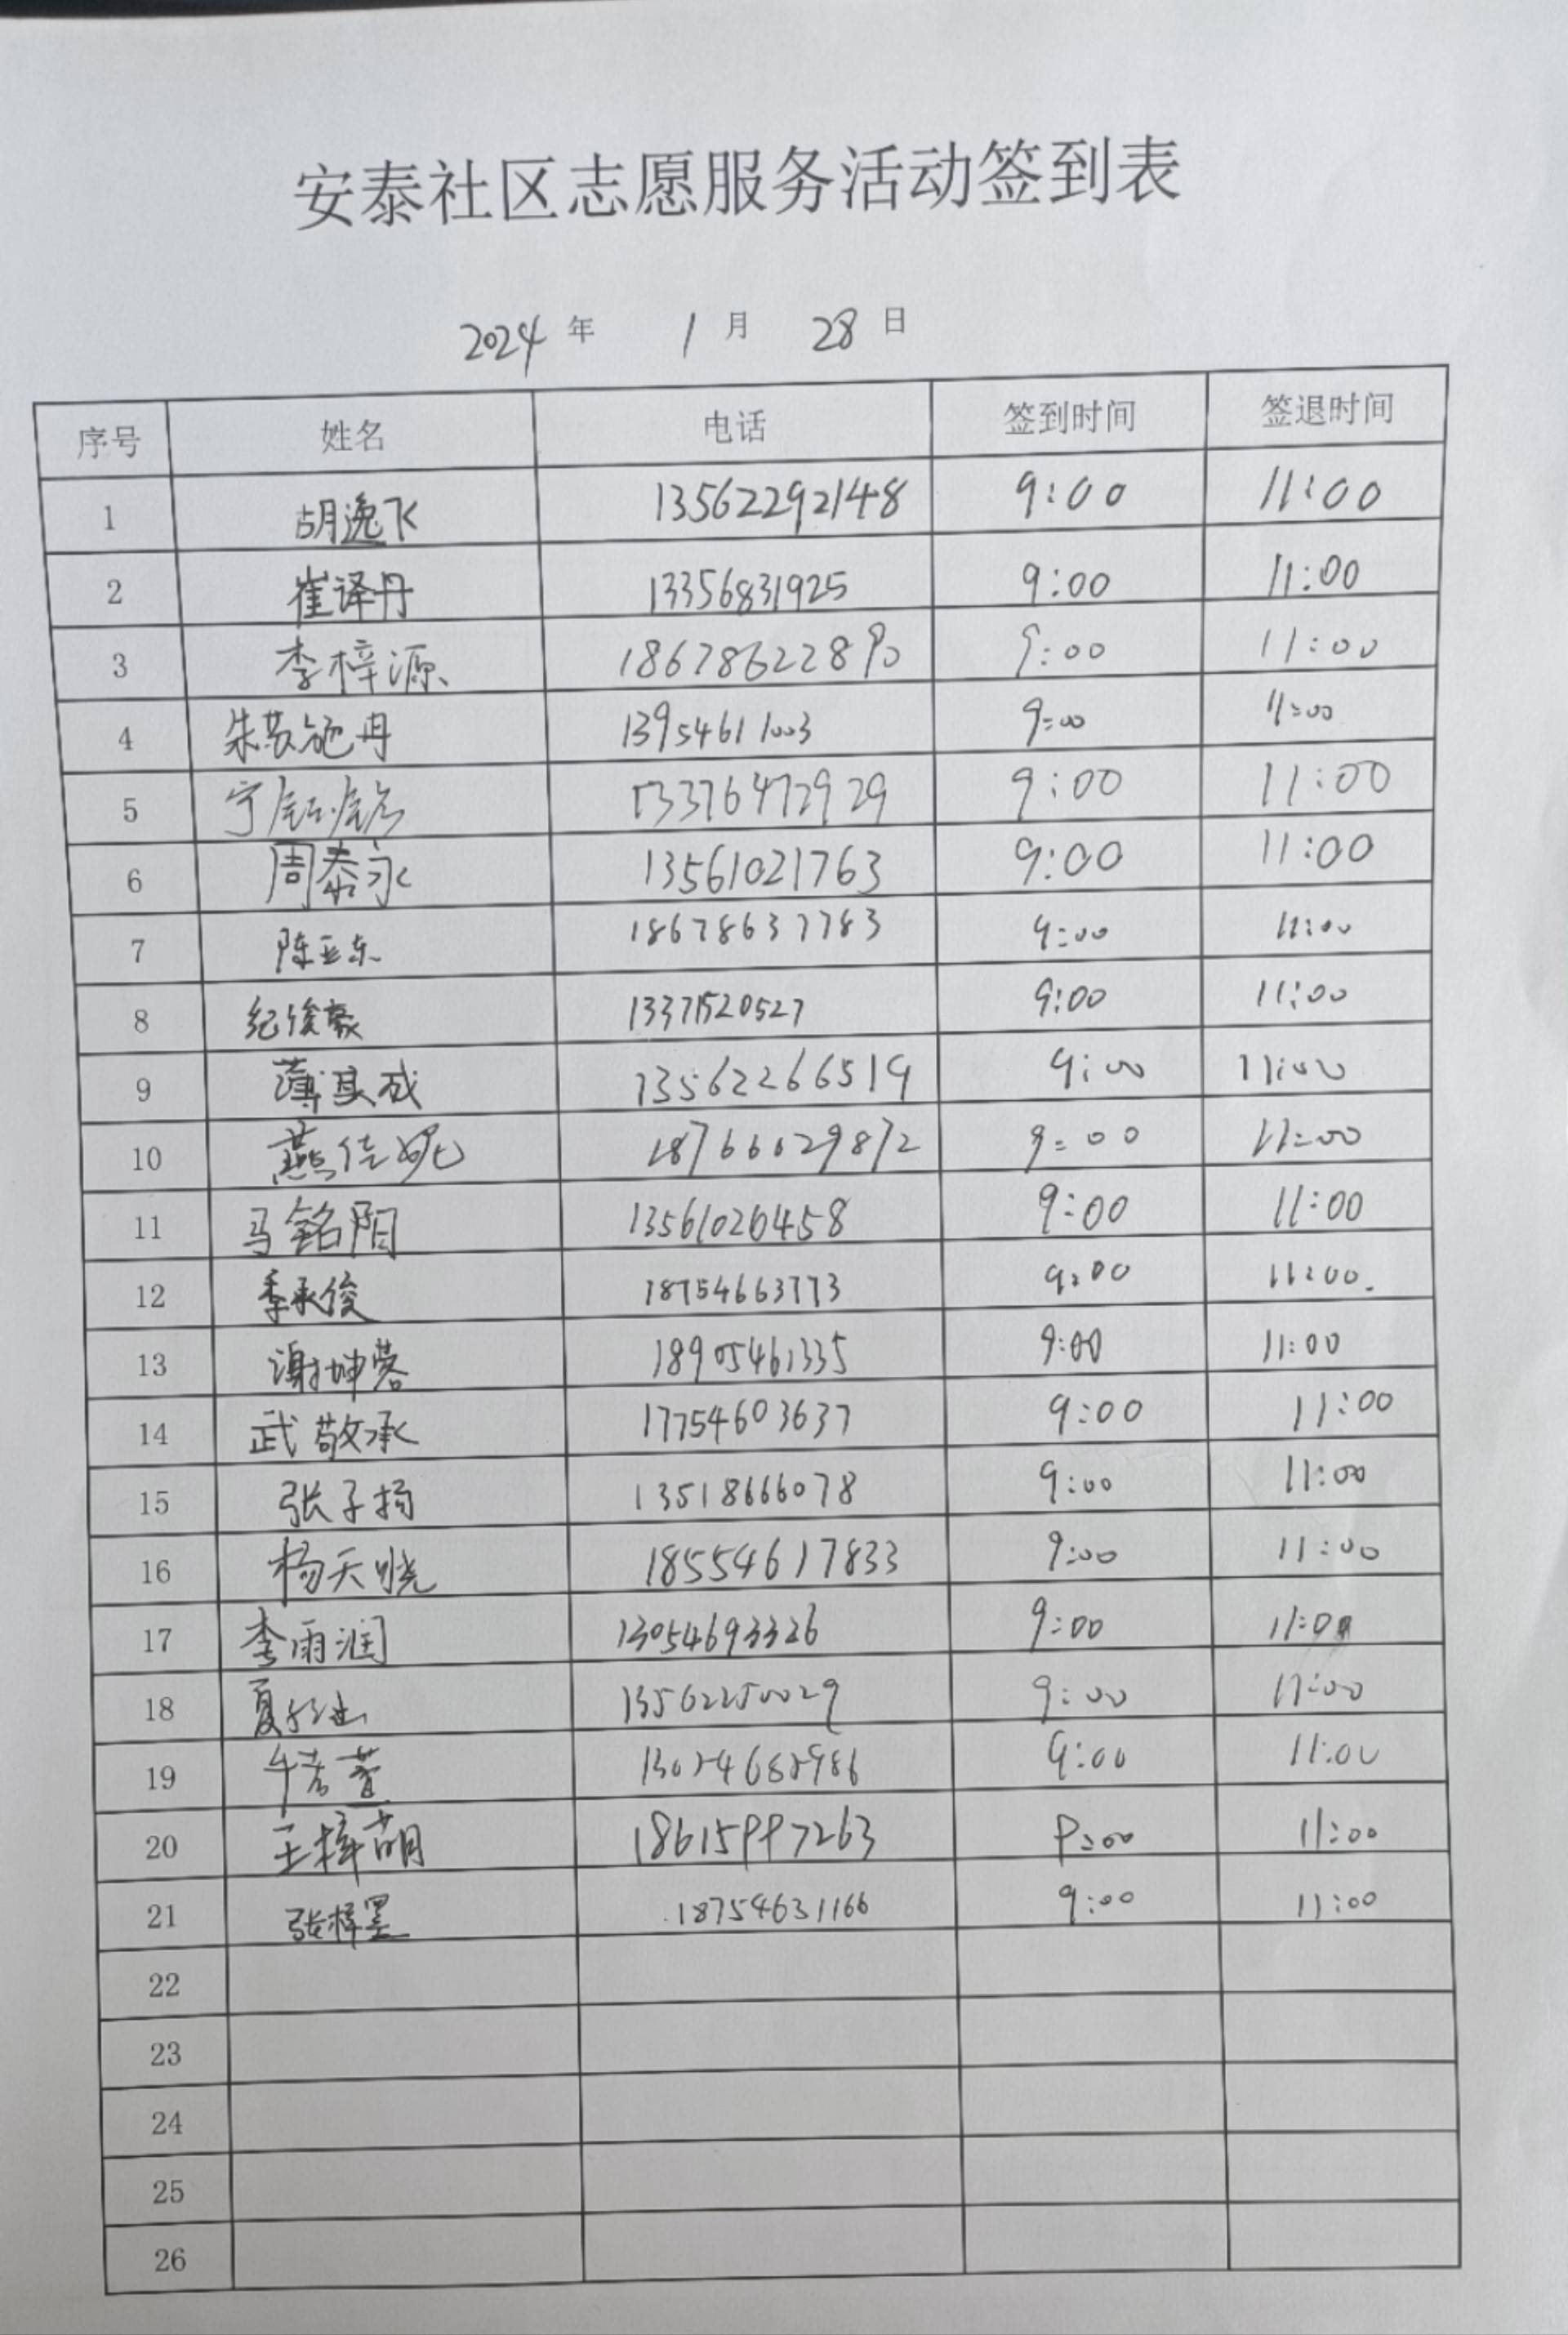 安泰社区志愿服务活动签到表
2024 年 1 月 28 日
序号 姓名 电话 签到时间 签退时间
1 胡逸飞 13562292148 9:00 11:00
2 崔译丹 13356831925 9:00 11:00
3 李梓源 18678622890 9:00 11:00
4 13954611003 9:00 11:00
5 13376472929 9:00 11:00
6 周泰永 13561021763 9:00 11:00
7 陈亚东 18678637783 9:00 11:00
8 纪俊豪 13371520527 9:00 11:00
9 薄其成 13562266519 9:00 11:00
10 燕佳妮 18766029872 9:00 11:00
11 马铭阳 13561026458 9:00 11:00
12 季承俊 18754663773 9:00 11:00.
13 谢坤蓉 18905461335 9:00 11:00
14 武敬承 17754603637 9:00 11:00
15 张子扬 13518666078 9:00 11:00
16 杨天晓 18554617833 9:00 11:00
17 李雨润 13054693326 9:00 11:00
18 13562250029 9:00 11:00
19 牛若萱 9:00 11:00
20 王梓萌 18615997263 9:00 11:00
21 张梓墨 18754631166 9:00 11:00
22
23
24
25
26